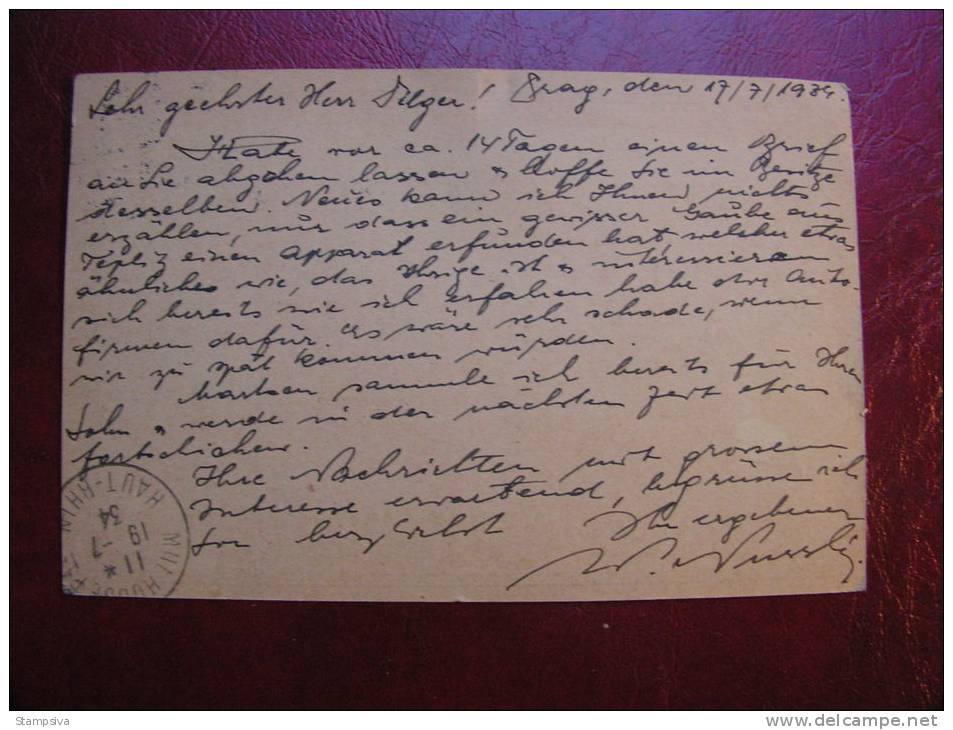 Sehr geehrter Herr Pilger! Prag, den 17/7/1934.
Habe vor ca. 14 Tagen einen Brief
an Sie abgehen lassen & hoffe Sie im Besitze
desselben. Neues kann ich Ihnen nichts
erzählen, nur dass ein gewisser aus
Tepliz einen Apparat erfunden hat, welcher etwas
ähnliches wie, das Ihrige ist & interessieren
sich bereits wie ich erfahren habe div. Auto-
firmen dafür. Es wäre sehr schade, wenn
wir zu spät kommen würden.
Marken sammle ich bereits für Ihren
Sohn & werde in der nächsten Zeit etwas
fortschicken.
Ihre Nachrichten mit grossem
Interesse erwartend, begrüsse ich
Sie herzlichst Ihr ergebener
MULHOUSE
HAUT-RHIN
11 *
19 -7
34
Stampsiva
www.delcampe.net